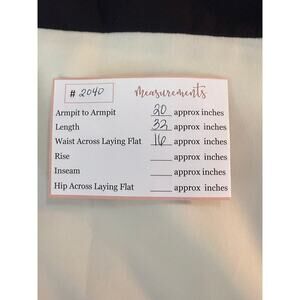 # 2040 Measurements
Armpit to Armpit 20 approx inches
Length 32 approx inches
Waist Across Laying Flat 16 approx inches
Rise ____ approx inches
Inseam ____ approx inches
Hip Across Laying Flat ____ approx inches